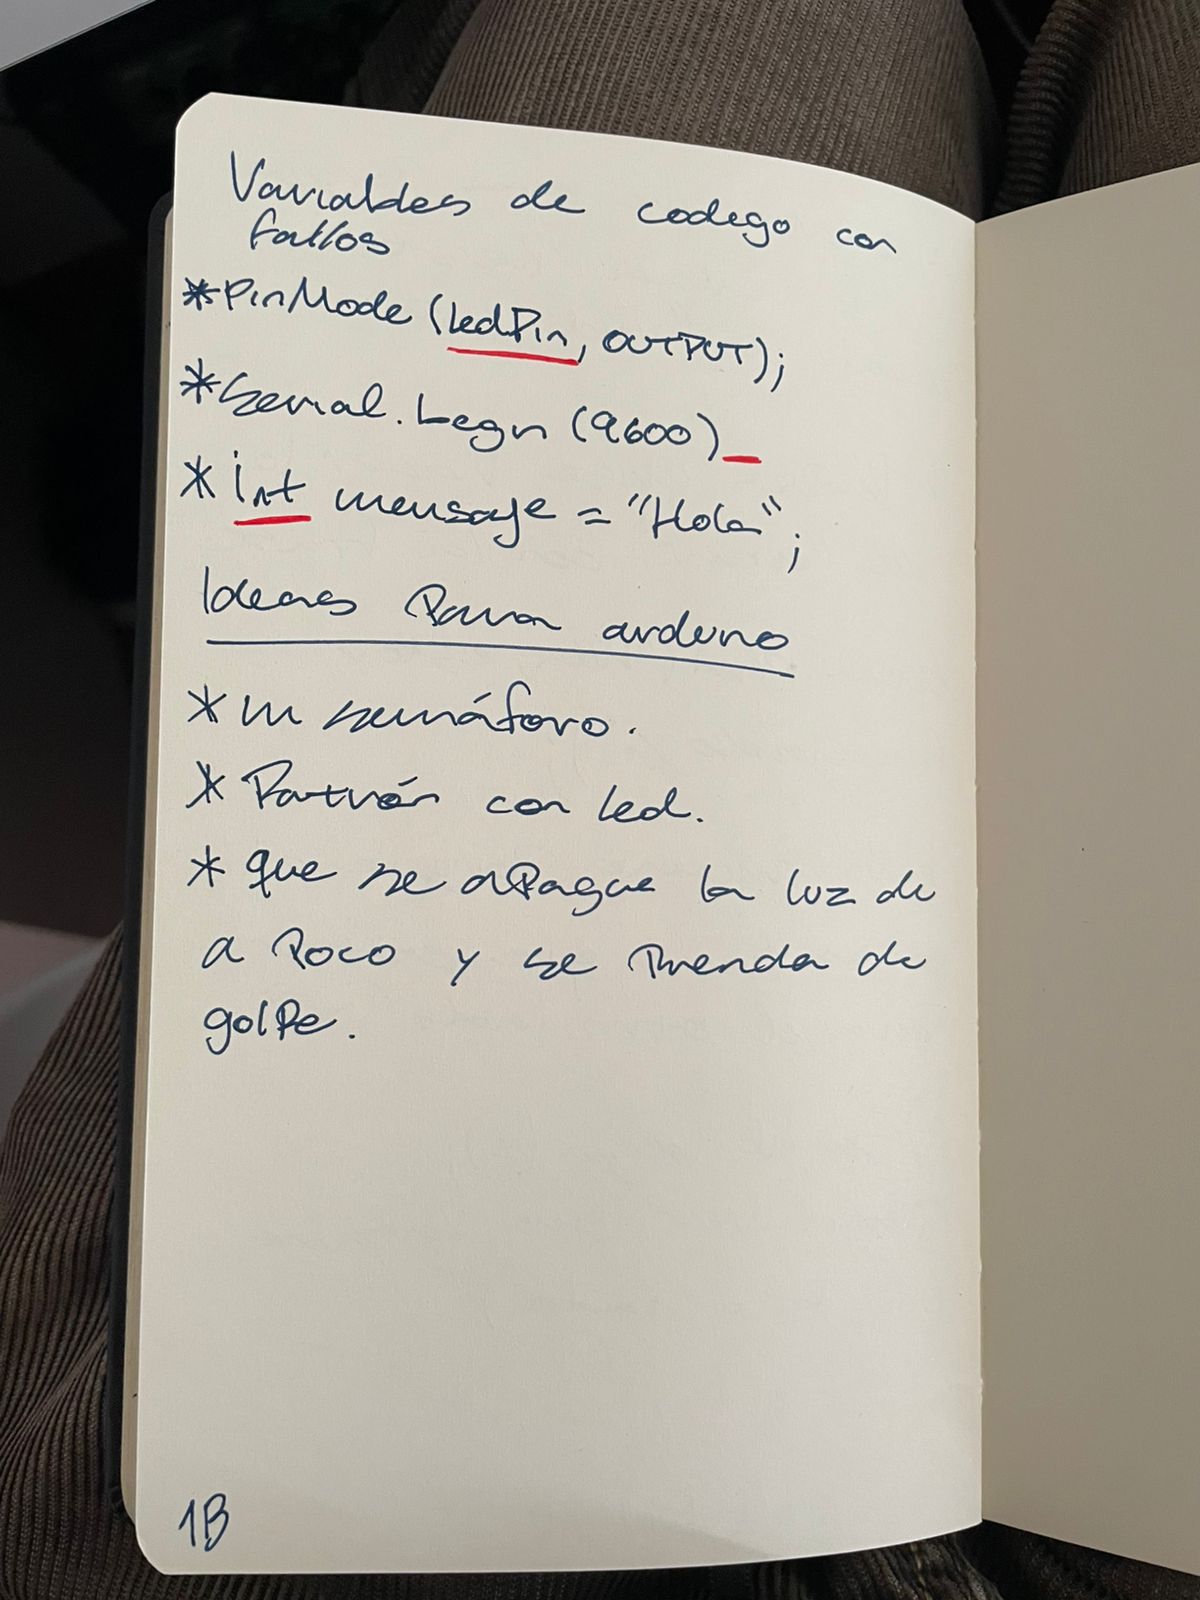 Variables de codigo con
fallos
*PinMode (ledPin, OUTPUT);
*Serial.begin (9600)_
* int mensaje = "Hola";
Ideas Para arduino
* un semáforo.
* Patrón con led.
* que se aPague la luz de
a Poco y se Prenda de
golPe.
1B